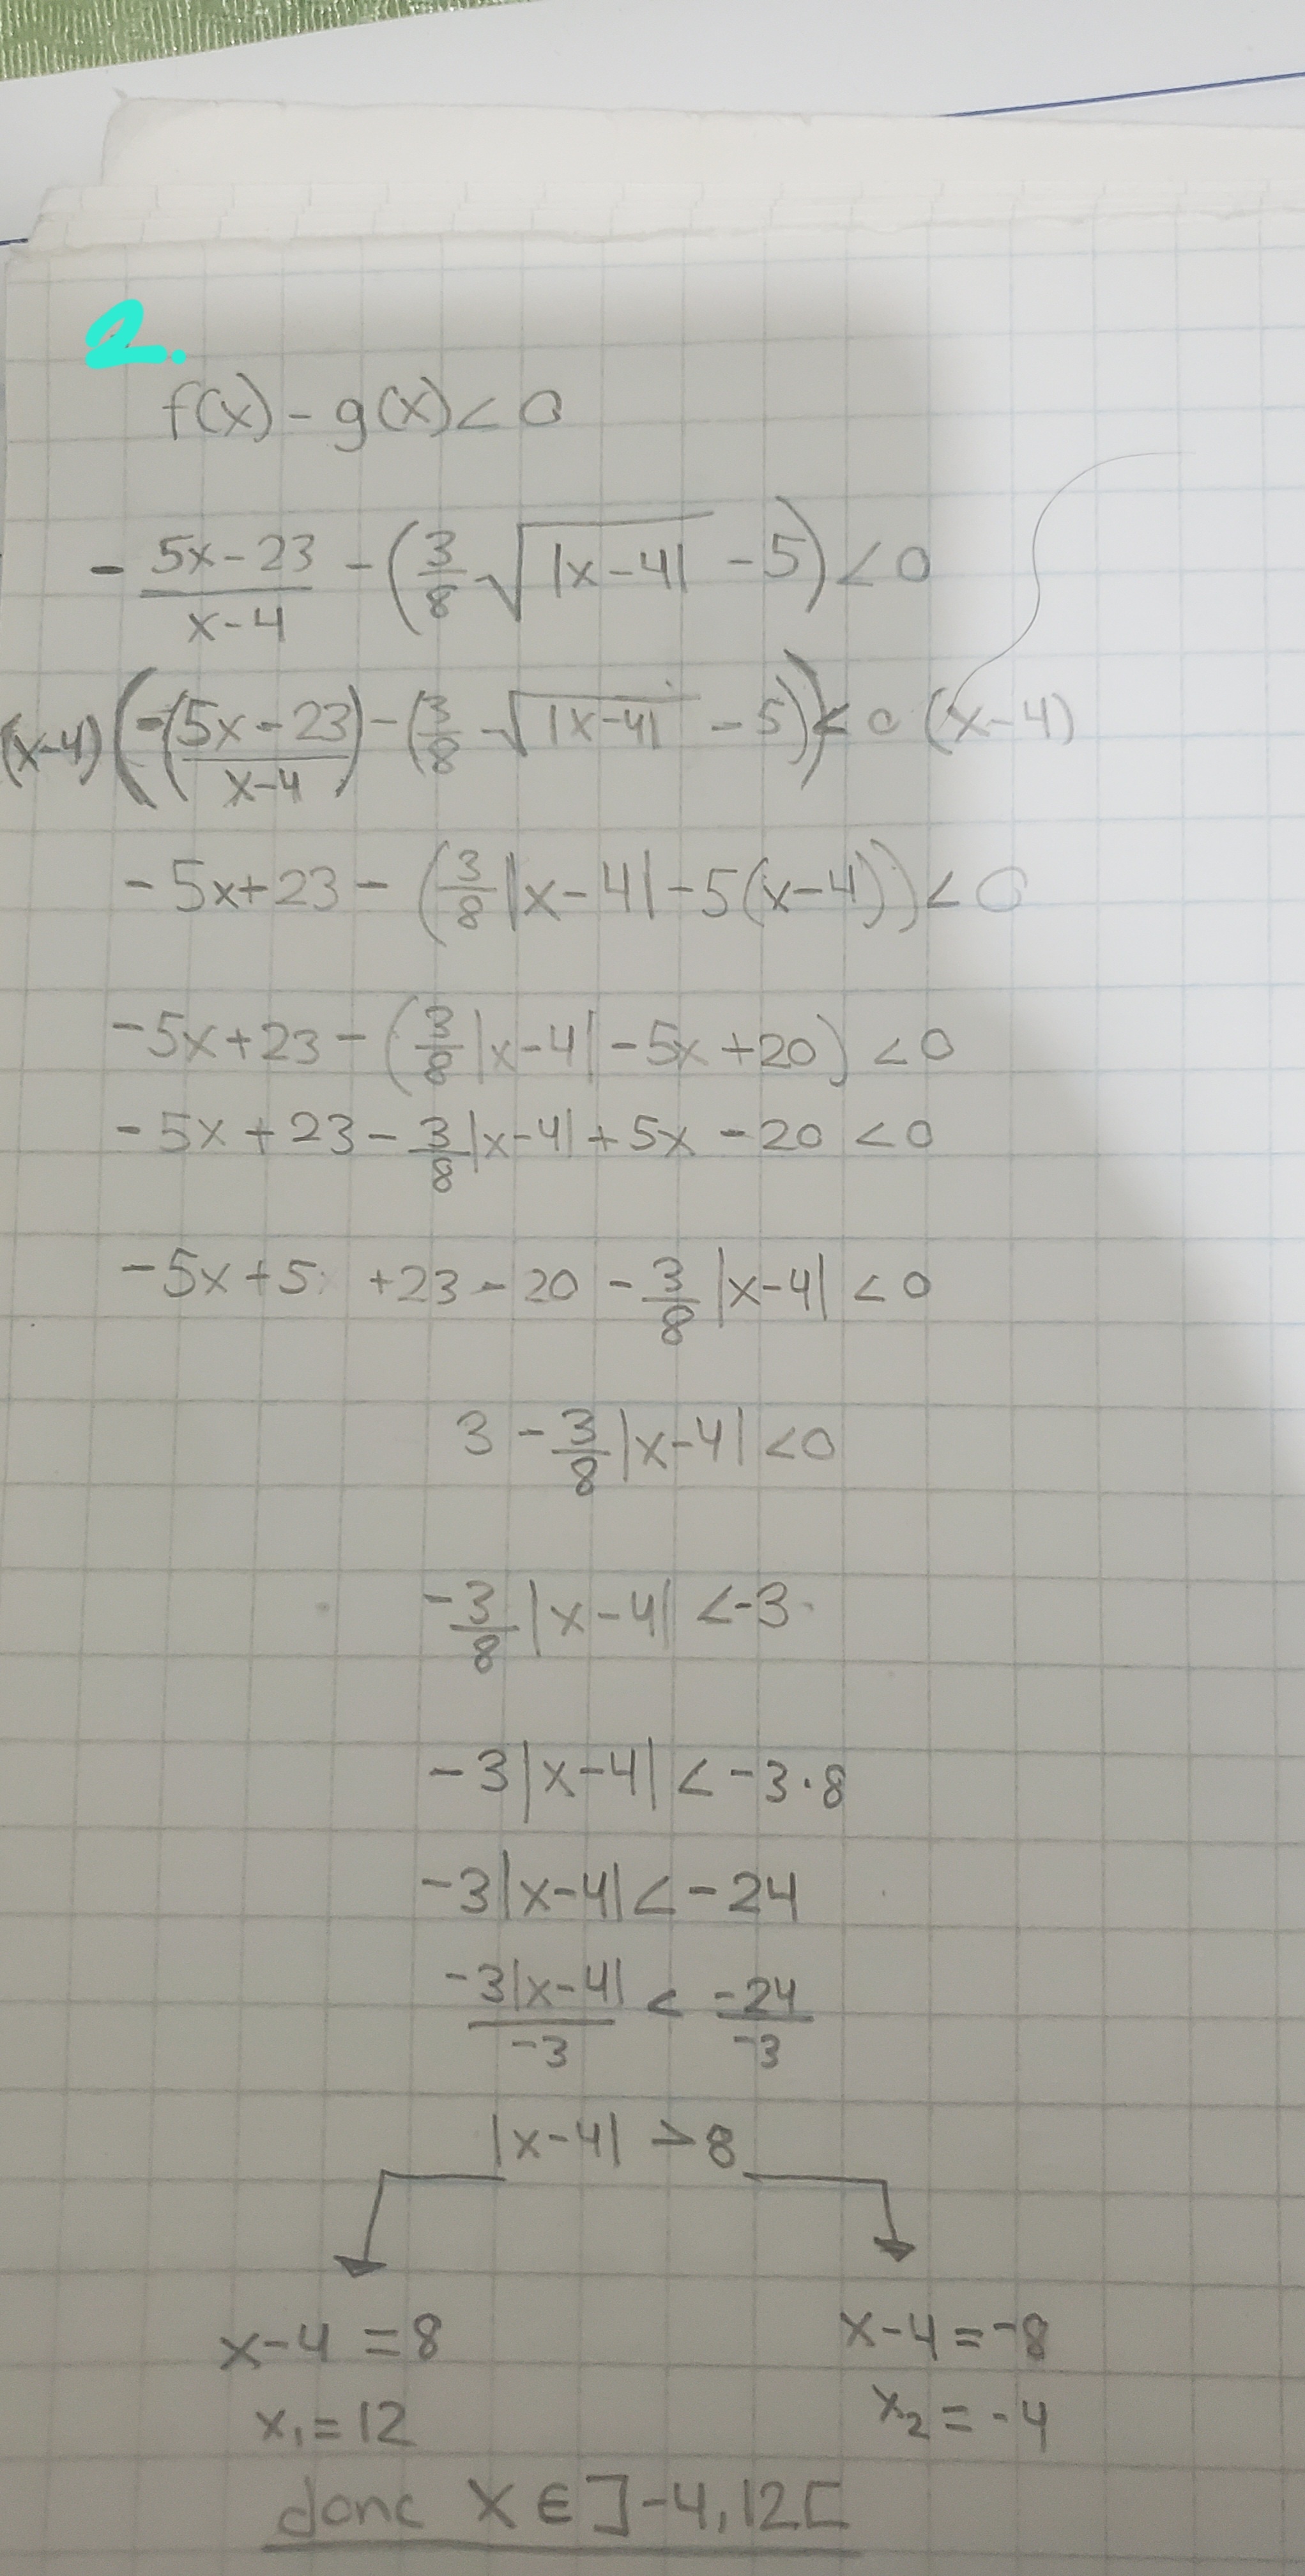 2.
f(x) - g(x) < 0
- \frac{5x-23}{x-4} - (\frac{3}{8} \sqrt{|x-4|} - 5) < 0
(x-4) (-(\frac{5x-23}{x-4}) - (\frac{3}{8} \sqrt{|x-4|} - 5)) < 0 (x-4)
-5x+23 - (\frac{3}{8} |x-4| - 5(x-4)) < 0
-5x+23 - (\frac{3}{8} |x-4| - 5x + 20) < 0
-5x + 23 - \frac{3}{8} |x-4| + 5x - 20 < 0
-5x+5 +23 - 20 - \frac{3}{8} |x-4| < 0
3 - \frac{3}{8} |x-4| < 0
-\frac{3}{8} |x-4| < -3
-3|x-4| < -3·8
-3|x-4| < -24
\frac{-3|x-4|}{-3} < \frac{-24}{-3}
|x-4| > 8
x-4 = 8 x-4 = -8
x₁ = 12 x₂ = -4
donc x ∈ ]-4,12[